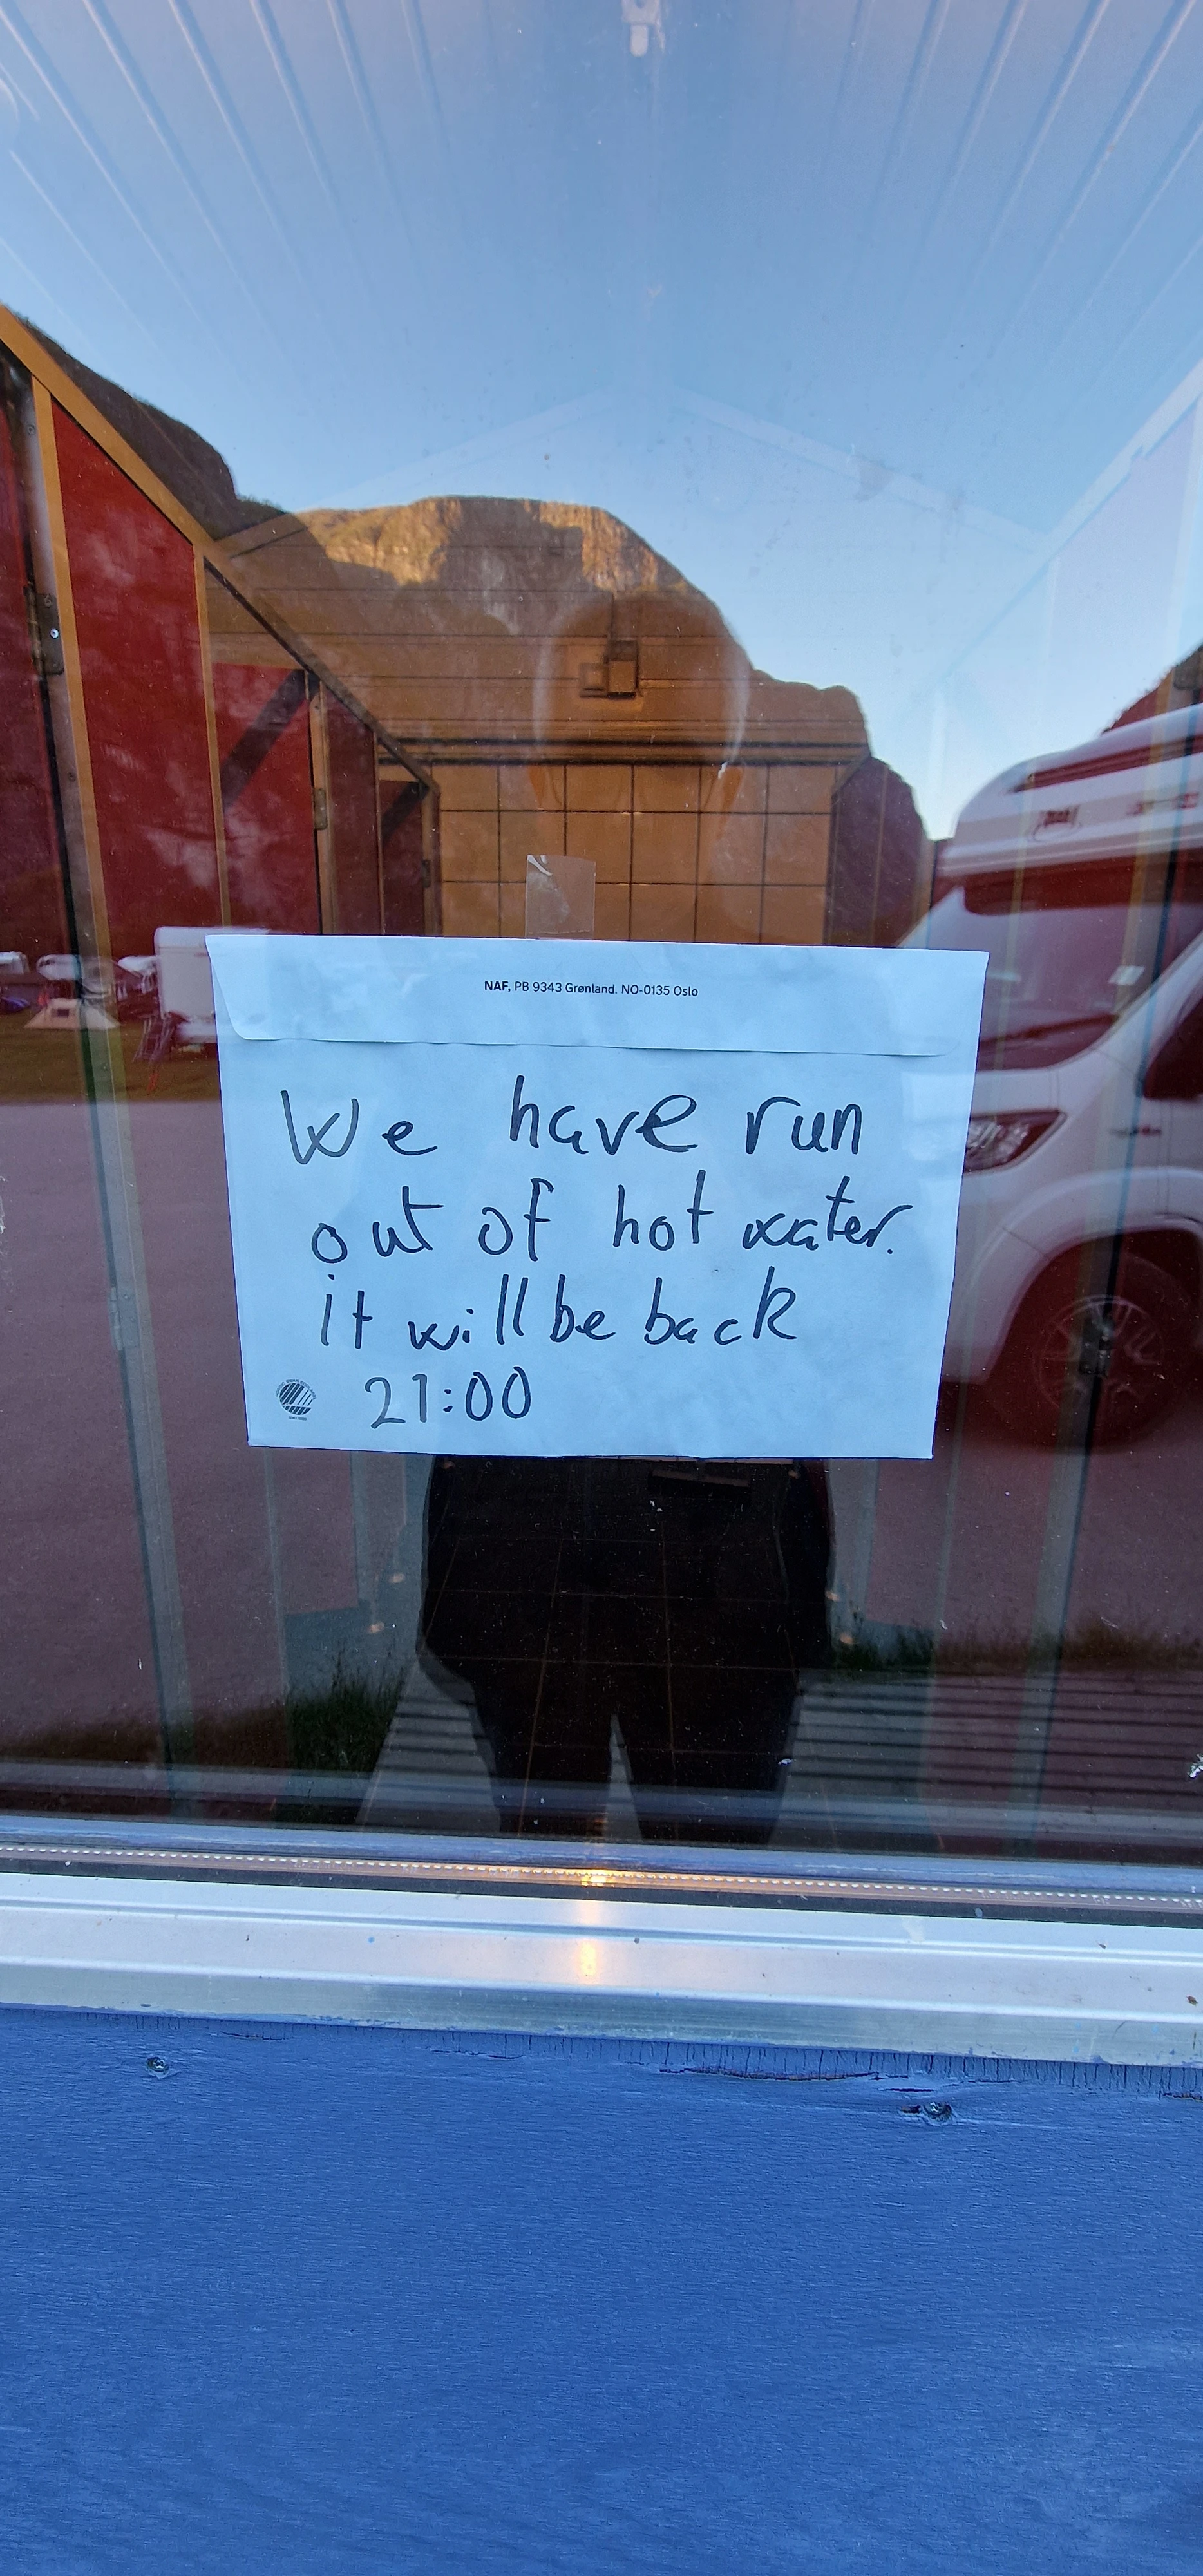 NAF, PB 9343 Grønland. NO-0135 Oslo
We have run
out of hot water.
it will be back
21:00